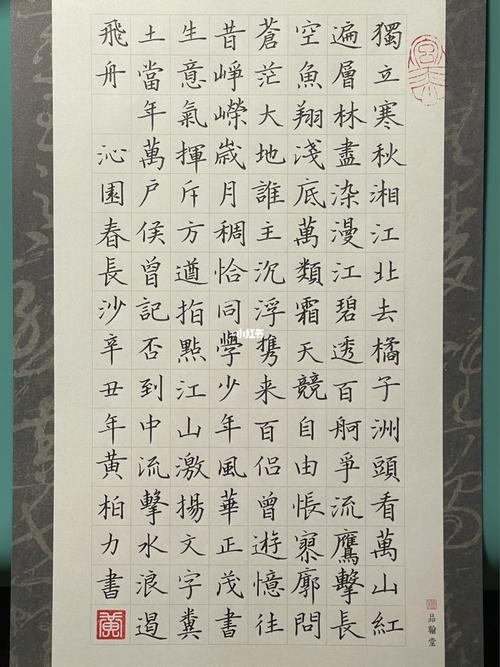 獨立寒秋湘江北去橘子洲頭看萬山紅
遍層林盡染漫江碧透百舸爭流鷹擊長
空魚翔淺底萬類霜天競自由悵寥廓問
蒼茫大地誰主沉浮携来百侣曾遊憶往
昔崢嶸歲月稠恰同學少年風華正茂書
生意氣揮斥方遒指點江山激揚文字糞
土當年萬戶侯曾記否到中流擊水浪遏
飛舟 沁園春長沙辛丑年黄柏力書
品翰堂
小红书